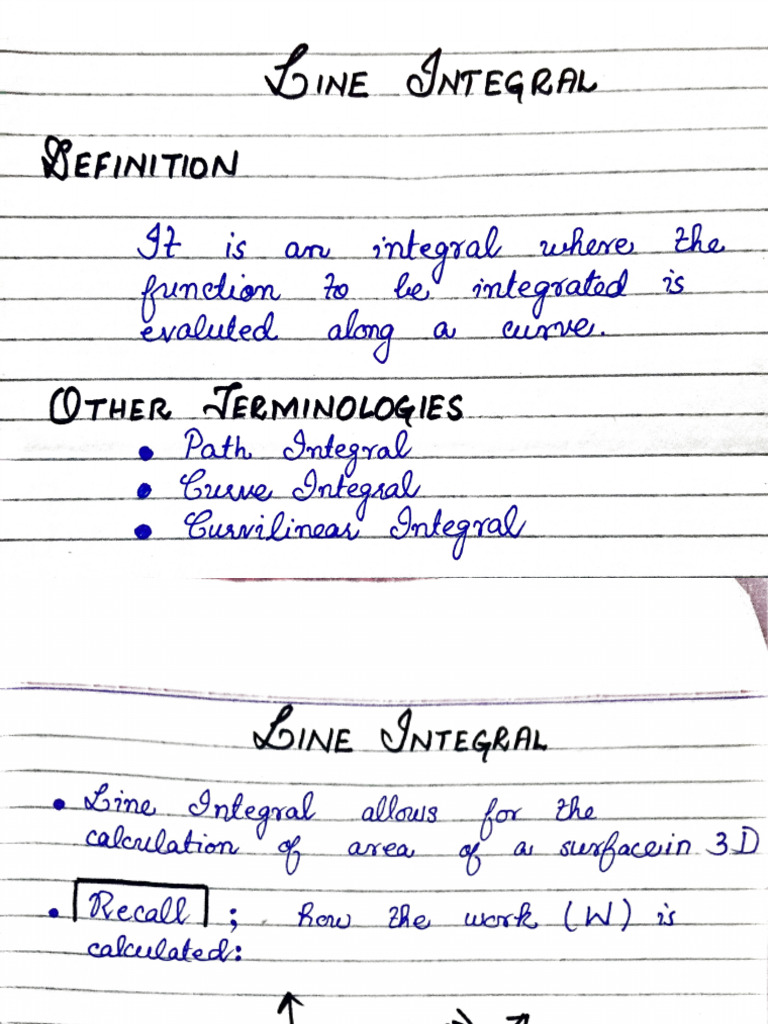 LINE INTEGRAL
DEFINITION
It is an integral where the
function to be integrated is
evaluted along a curve.
OTHER TERMINOLOGIES
• Path Integral
• Curve Integral
• Curvilinear Integral
LINE INTEGRAL
• Line Integral allows for the
calculation of area of a surface in 3D
• Recall ; how the work (W) is
calculated: